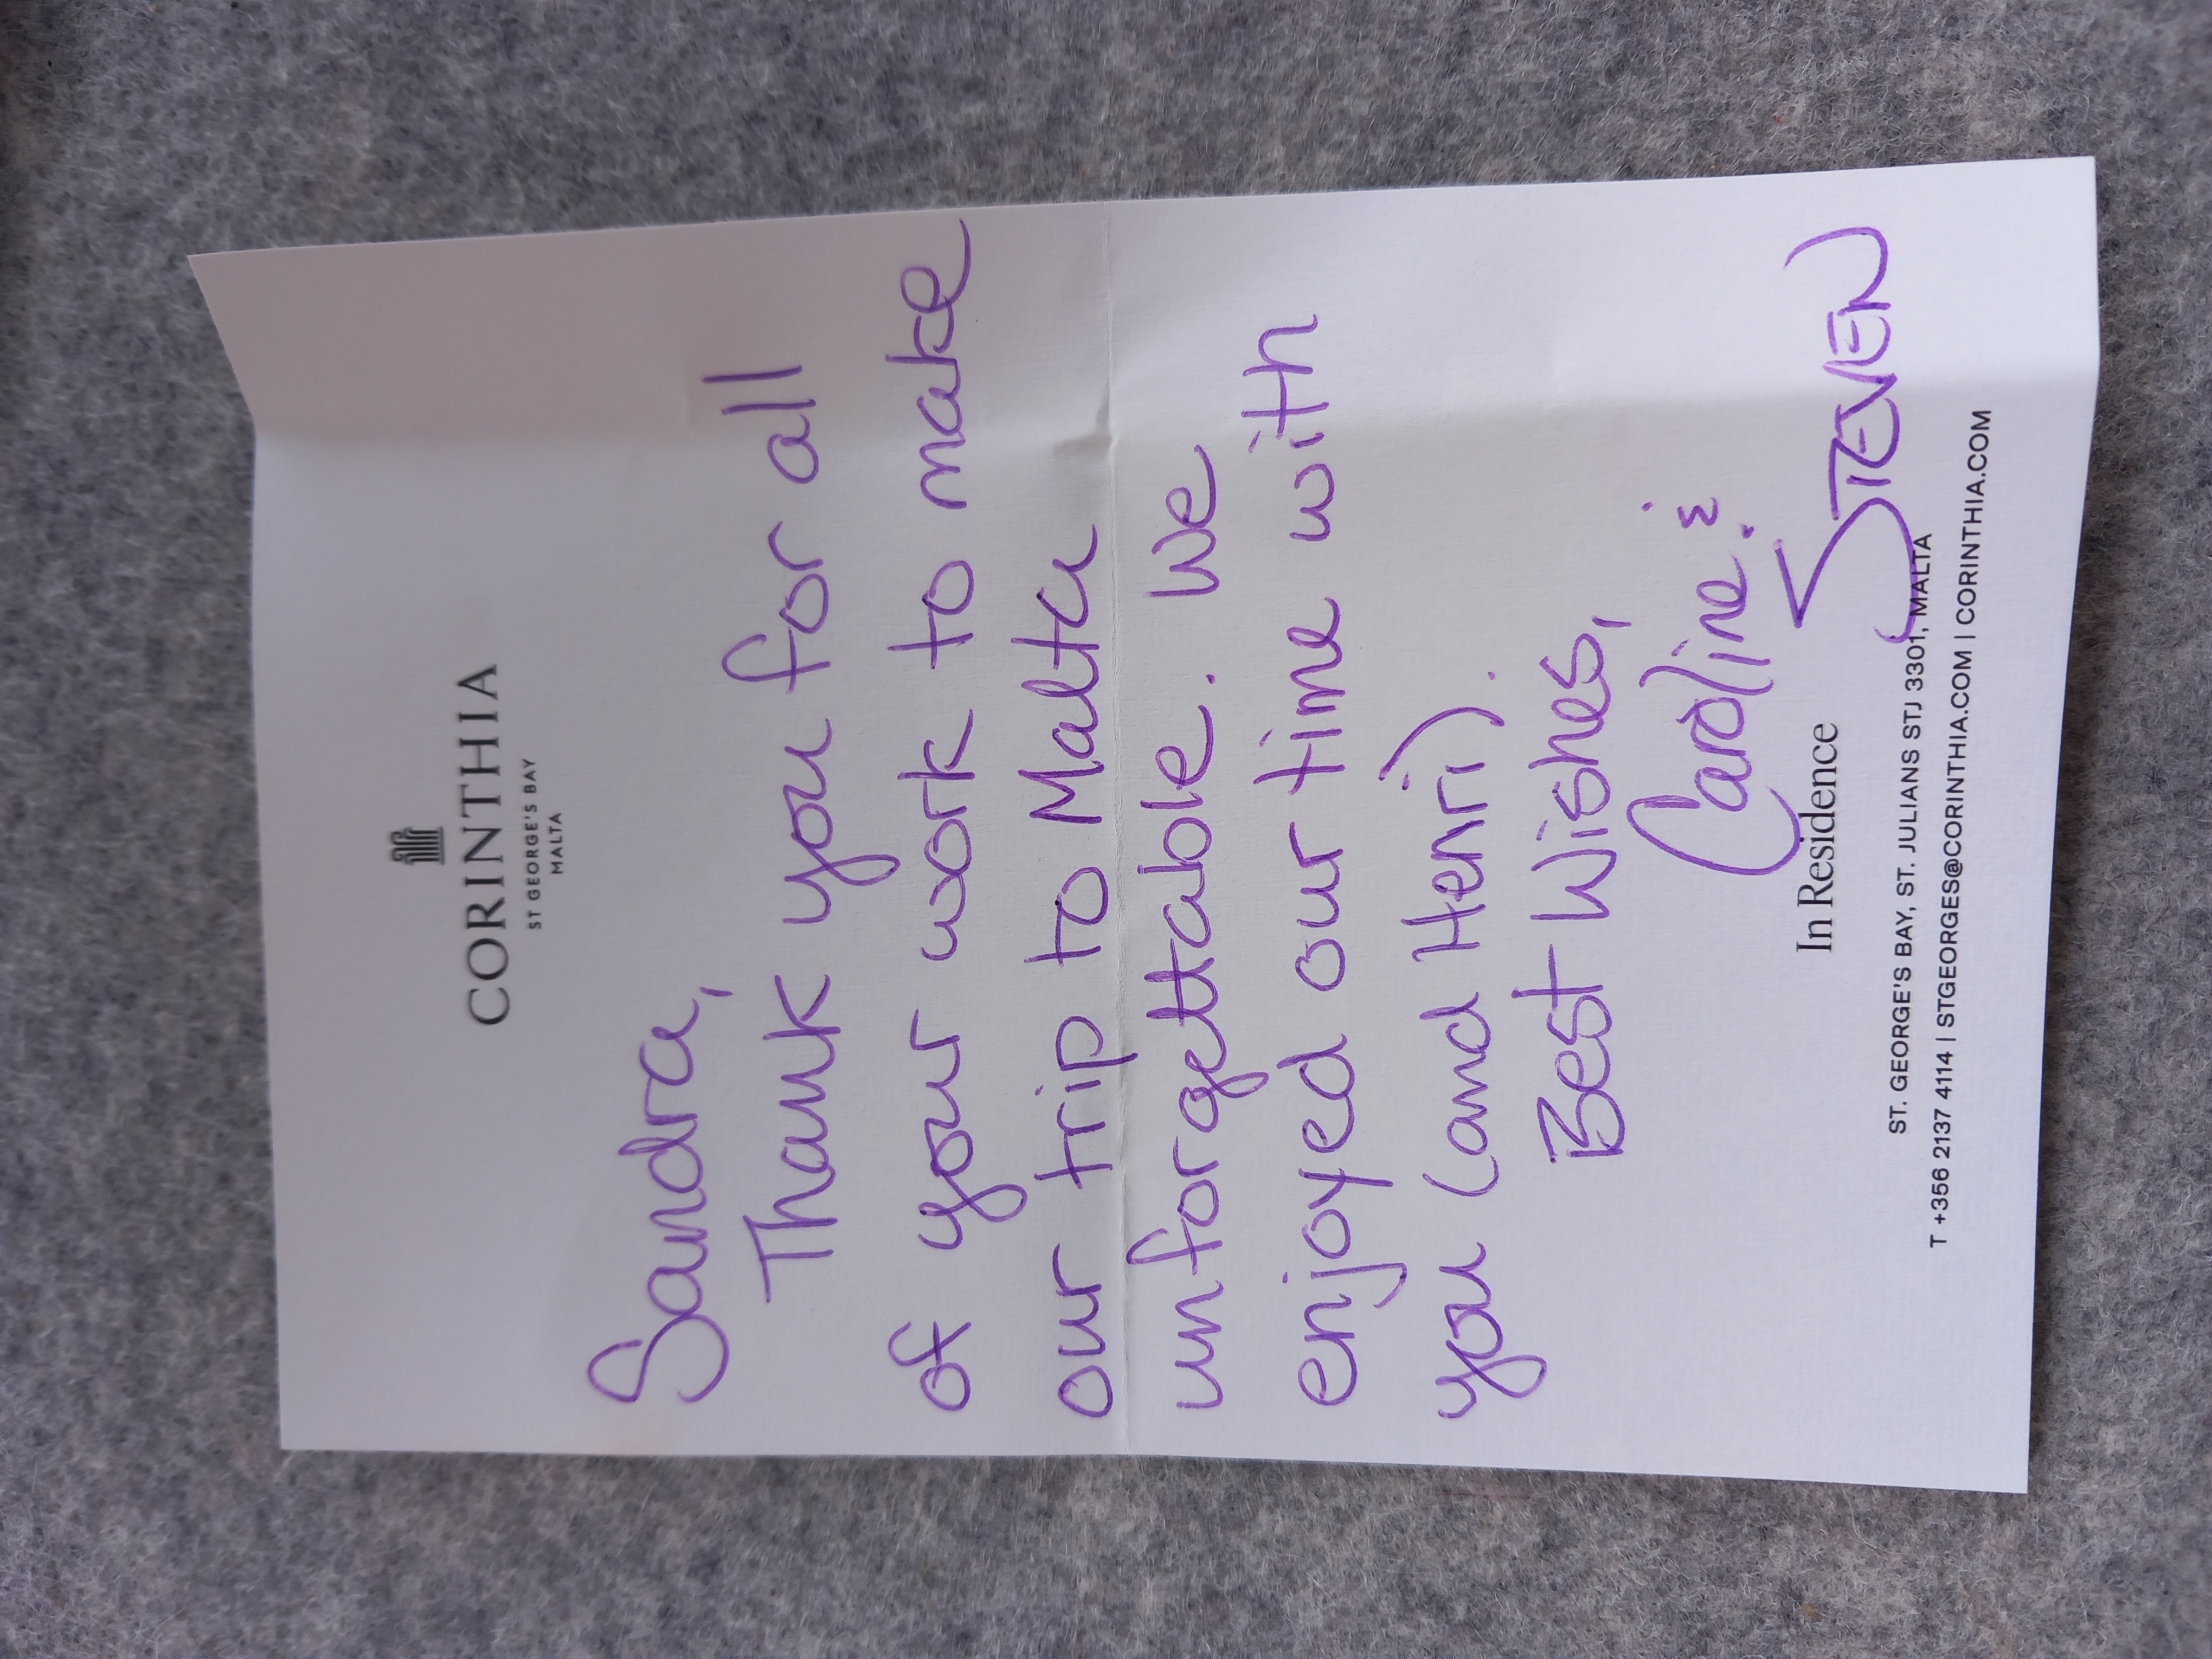 CORINTHIA
ST GEORGE'S BAY
MALTA
Sandra,
Thank you for all
of your work to make
our trip to Malta
unforgettable. We
enjoyed our time with
you (and Henri).
Best Wishes,
Caroline &
STEVEN
In Residence
ST. GEORGE'S BAY, ST. JULIANS STJ 3301, MALTA
T +356 2137 4114 | STGEORGES@CORINTHIA.COM | CORINTHIA.COM